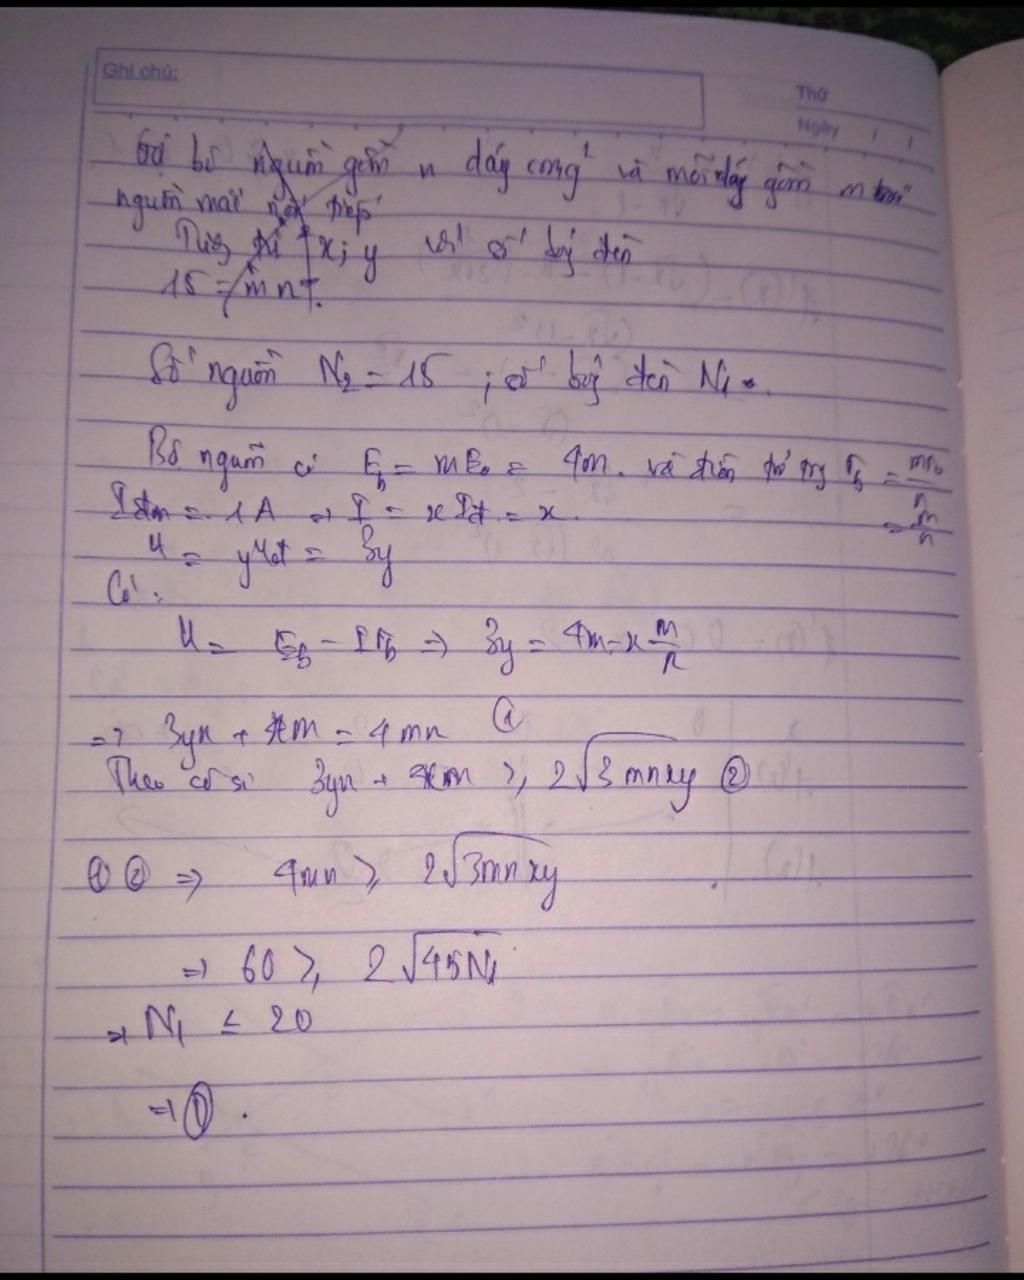 Ghi chú:
Thứ
Ngày / /
bộ nguồn gồm n dãy song² và mỗi dãy gồm m
nguồn mắc nối tiếp
x; y với số bóng đèn
15 = mn
Số nguồn N₂ = 15 ; số bóng đèn N₁
Bộ nguồn có E_b = mE₀ = 4m. và điện trở trg r_b = mr₀/n
I_đm = 1A ⇒ I = xI_đ = x. = m/n
U = yU_đ = 3y
Có:
U = E_b − Ir_b ⇒ 3y = 4m − x m/n
=> 3yn + xm = 4mn ①
Theo cô si 3yn + xm ≥ 2√3mnxy ②
① ② ⇒ 4mn ≥ 2√3mnxy
⇒ 60 ≥ 2√45N₁
⇒ N₁ ≤ 20
⇒ ① .